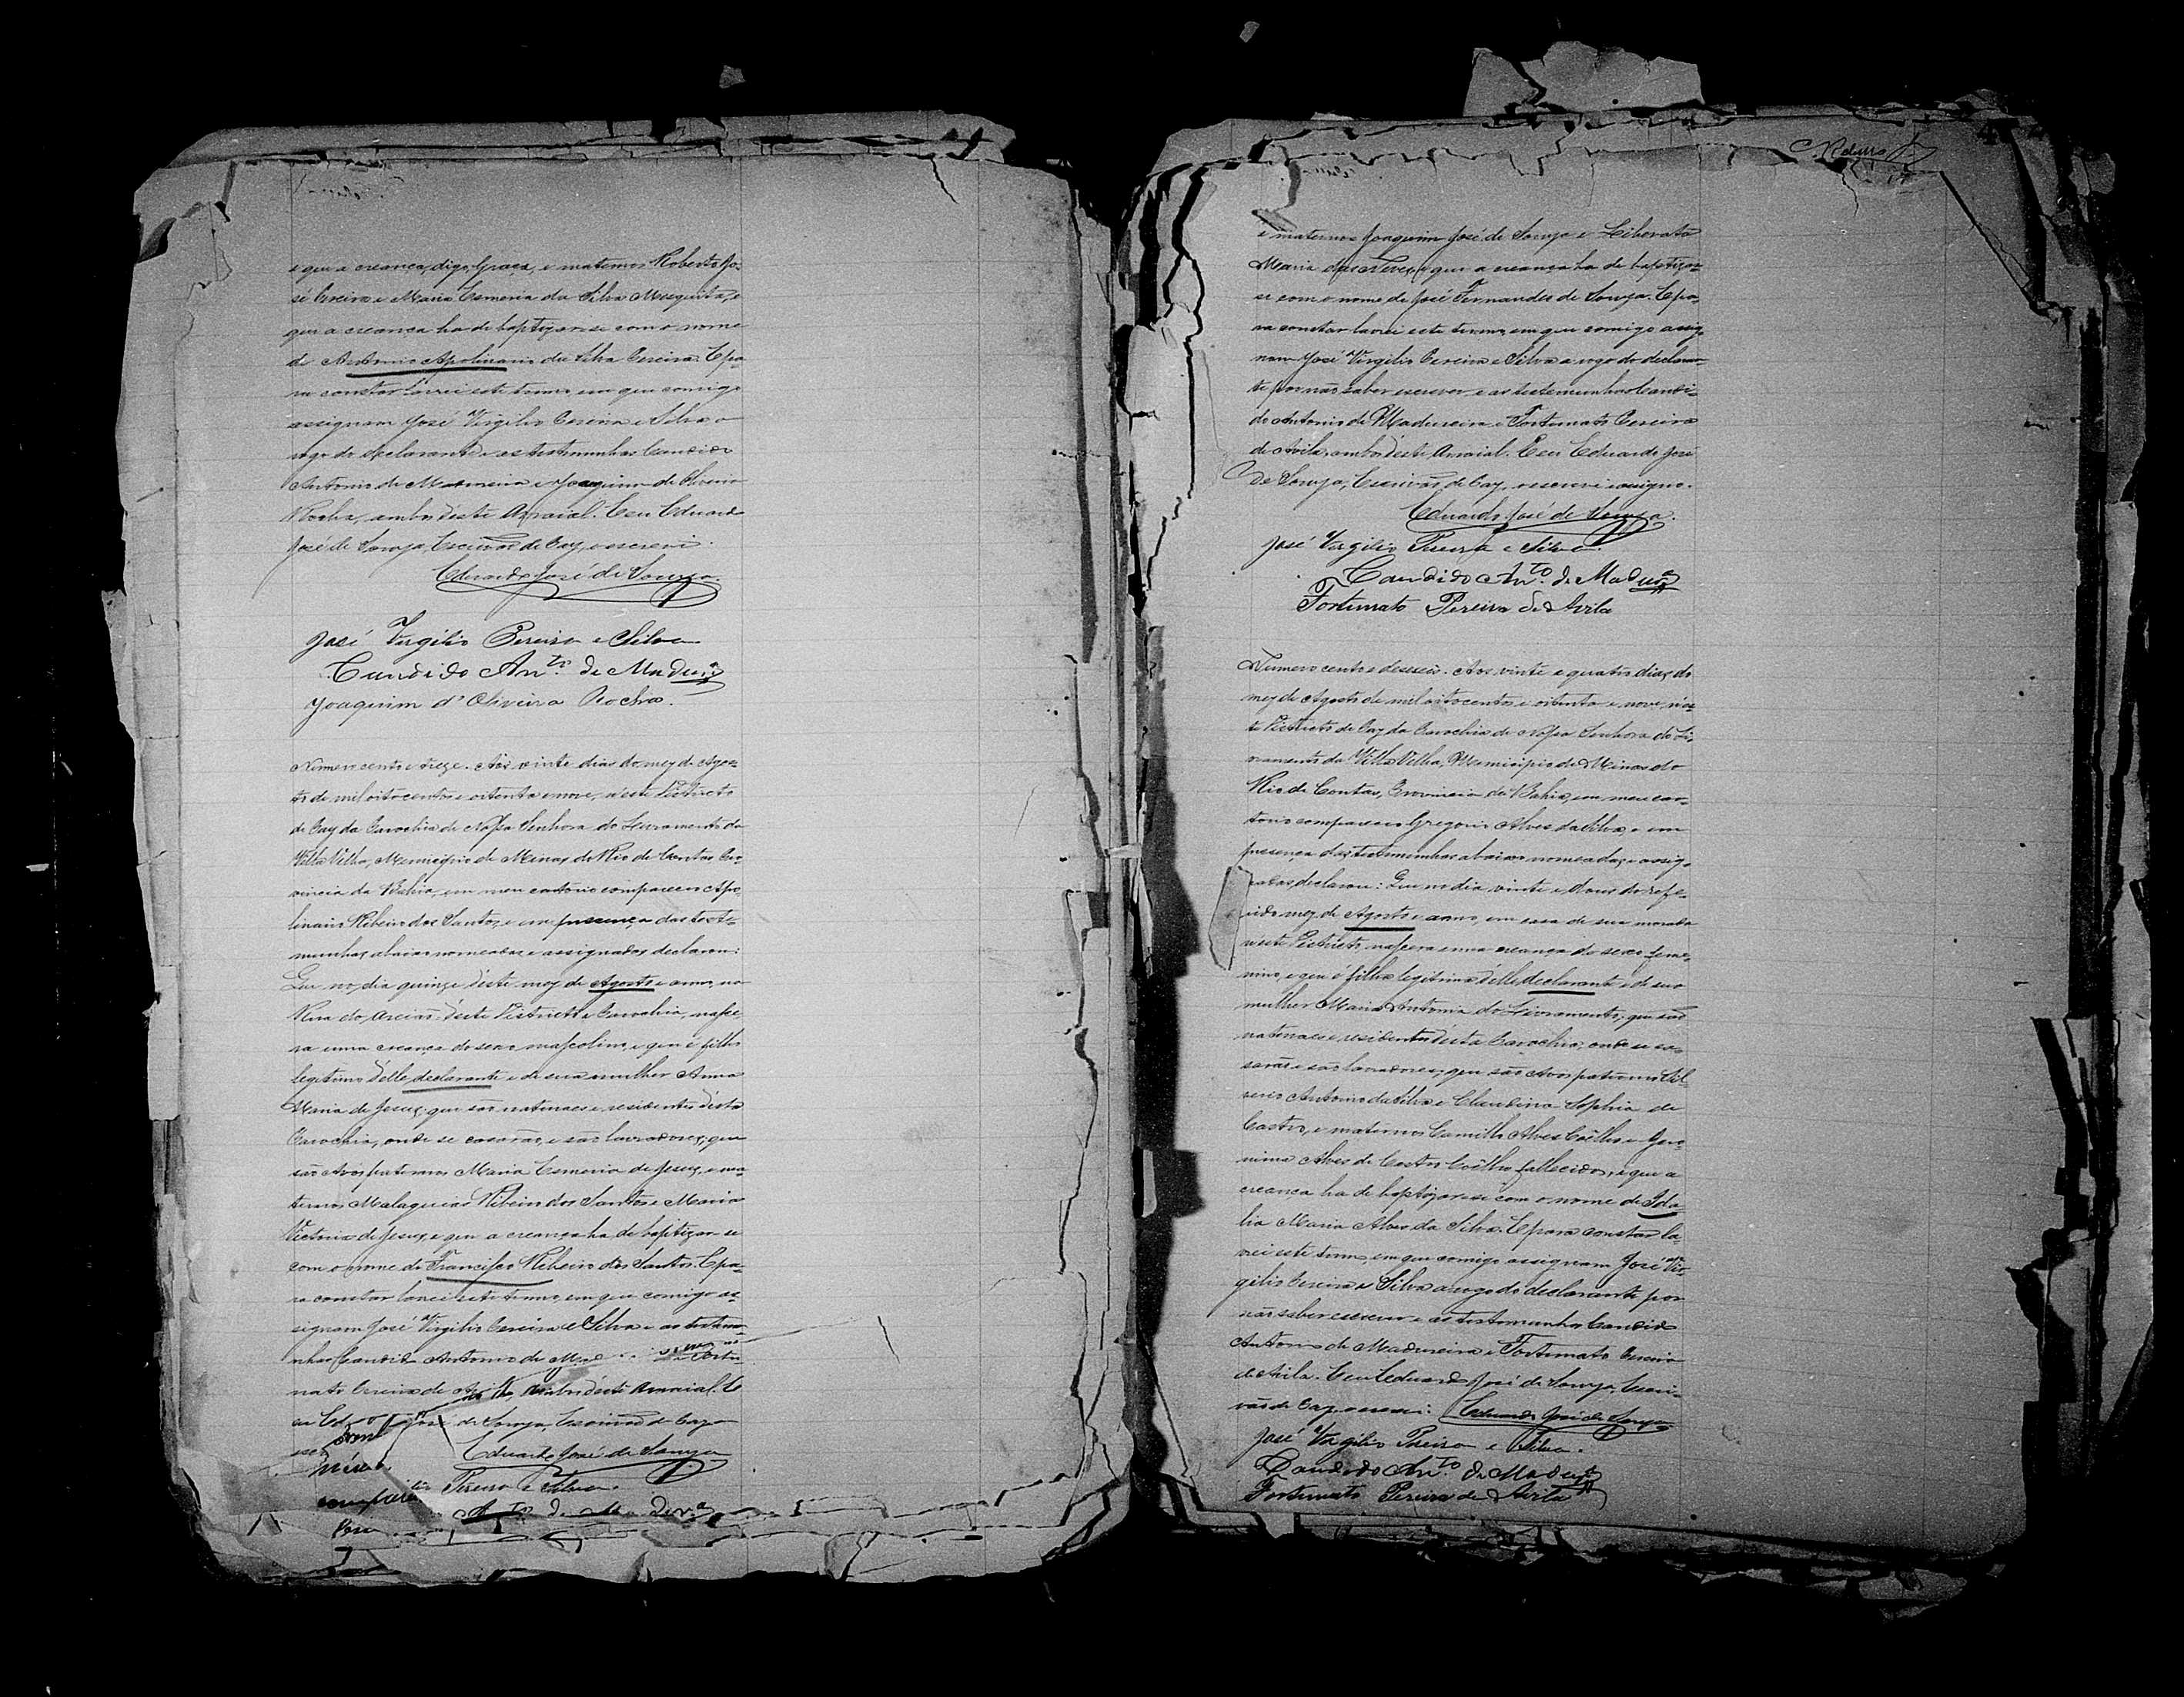 e que a creança, digo, Graça, e maternos Roberto Jo-
sé Pereira e Maria Esmeria da Silva Mesquita, e
que a creança ha de baptizar-se com o nome
de Antonio Apolinario da Silva Pereira. E pa-
ra constar lavrei este termo em que comigo
assignam José Virgilio Pereira e Silva a
rogo do declarante e as testemunhas Candido
Antonio de Madureira e Joaquim de Oliveira
Rocha, ambos deste Arraial. E eu Eduardo
José de Souza, Escrivão de Paz, o escrevi.
Eduardo José de Souza.
José Virgilio Pereira e Silva
Candido An.to de Madur.a
Joaquim d'Oliveira Rocha.
Numero cento e treze. Aos vinte dias do mez de Agos-
to de mil oitocentos e oitenta e nove, n'este Districto
de Paz da Parochia de Nossa Senhora do Livramento da
Villa Velha, Municipio de Minas do Rio de Contas Pro-
vincia da Bahia, em meu cartorio compareceo Apo-
linario Ribeiro dos Santos, e em presença das teste-
munhas abaixo nomeadas e assignadas declarou:
Que no dia quinze d'este mez de Agosto e anno, na
Rua do Areião d'este Districto e Parochia, nasce-
ra uma creança do sexo masculino, e que é filho
legitimo d'elle declarante e de sua mulher Anna
Maria de Jesus, que são naturaes e residentes d'esta
Parochia, onde se casarão, e são lavradores, que
são Avos paternos Maria Esmeria de Jesus, e ma-
ternos Malaquias Ribeiro dos Santos e Maria
Victoria de Jesus, e que a creança ha de baptizar-se
com o nome de Francisco Ribeiro dos Santos. E pa-
ra constar lavrei este termo, em que comigo as-
signam José Virgilio Pereira e Silva e as testemu-
nhas Candido Antonio de Mad e Fortu-
nato Pereira de Avila, ambos d'este Arraial. E
eu José de Souza, Escrivão de Paz o
Eduardo José de Souza
Pereira e Silva.
An.to de Madur.a
e maternos Joaquim José de Souza e Liberata
Maria das Neves, e que a creança ha de baptizar-
se com o nome de José Fernandes de Souza. E pa-
ra constar lavrei este termo, em que comigo assig-
nam José Virgilio Pereira e Silva a rogo do declaran-
te por não saber escrever, e as testemunhas Candi-
do Antonio de Madureira e Fortunato Pereira
de Avila, ambos d'este Arraial. E eu Eduardo José
de Souza, Escrivão de Paz, o escrevi e assigno.
Eduardo José de Souza.
José Virgilio Pereira e Silva.
Candido An.to de Madur.a
Fortunato Pereira de Avila
Numero cento e deseseis. Aos vinte e quatro dias do
mez de Agosto de mil oitocentos e oitenta e nove, n'es-
te Districto de Paz da Parochia de Nossa Senhora do Li-
vramento da Villa Velha, Municipio de Minas do
Rio de Contas, Provincia da Bahia, em meu car-
torio compareceo Gregorio Alves da Silva e em
presença das testemunhas abaixo nomeadas, e assig-
nadas, declarou: Que no dia vinte e dous do refe-
rido mez de Agosto e anno, em casa de sua morada
n'este Districto, nascera uma creança do sexo feme-
nino, e que é filha legitima d'elle declarante e de sua
mulher Maria Antonia do Livramento, que são
naturaes e residentes d'esta Parochia, onde se ca-
sarão e são lavradores, que são Avos paternos Sil-
verio Antonio da Silva e Claudina Sophia de
Castro, e maternos Camillo Alves Coêlho e Jero-
nima Alves de Castro Coêlho fallecidos, e que a
creança ha de baptizar-se com o nome de Ida-
lia Maria Alves da Silva. E para constar la-
vrei este termo, em que comigo assignam José Vir-
gilio Pereira e Silva a rogo do declarante por
não saber escrever e as testemunhas Candido
Antonio de Madureira e Fortunato Pereira
de Avila. E eu Eduardo José de Souza, Escri-
vão de Paz o escrevi: Eduardo José de Souza
José Virgilio Pereira e Silva.
Candido An.to de Madur.a
Fortunato Pereira de Avila